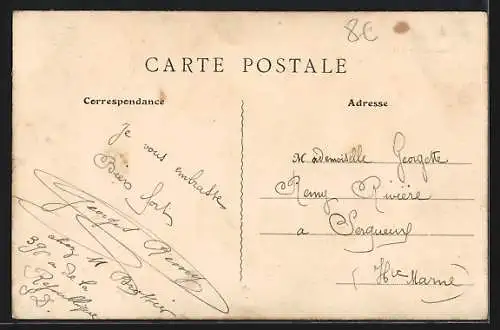 8C
CARTE POSTALE
Correspondance
Adresse
Je vous embrasse
Bien fort
Georges Remy
chez M
de la
République
Mademoiselle Georgette
Remy Rivière
a Serqueux
(Hte Marne)